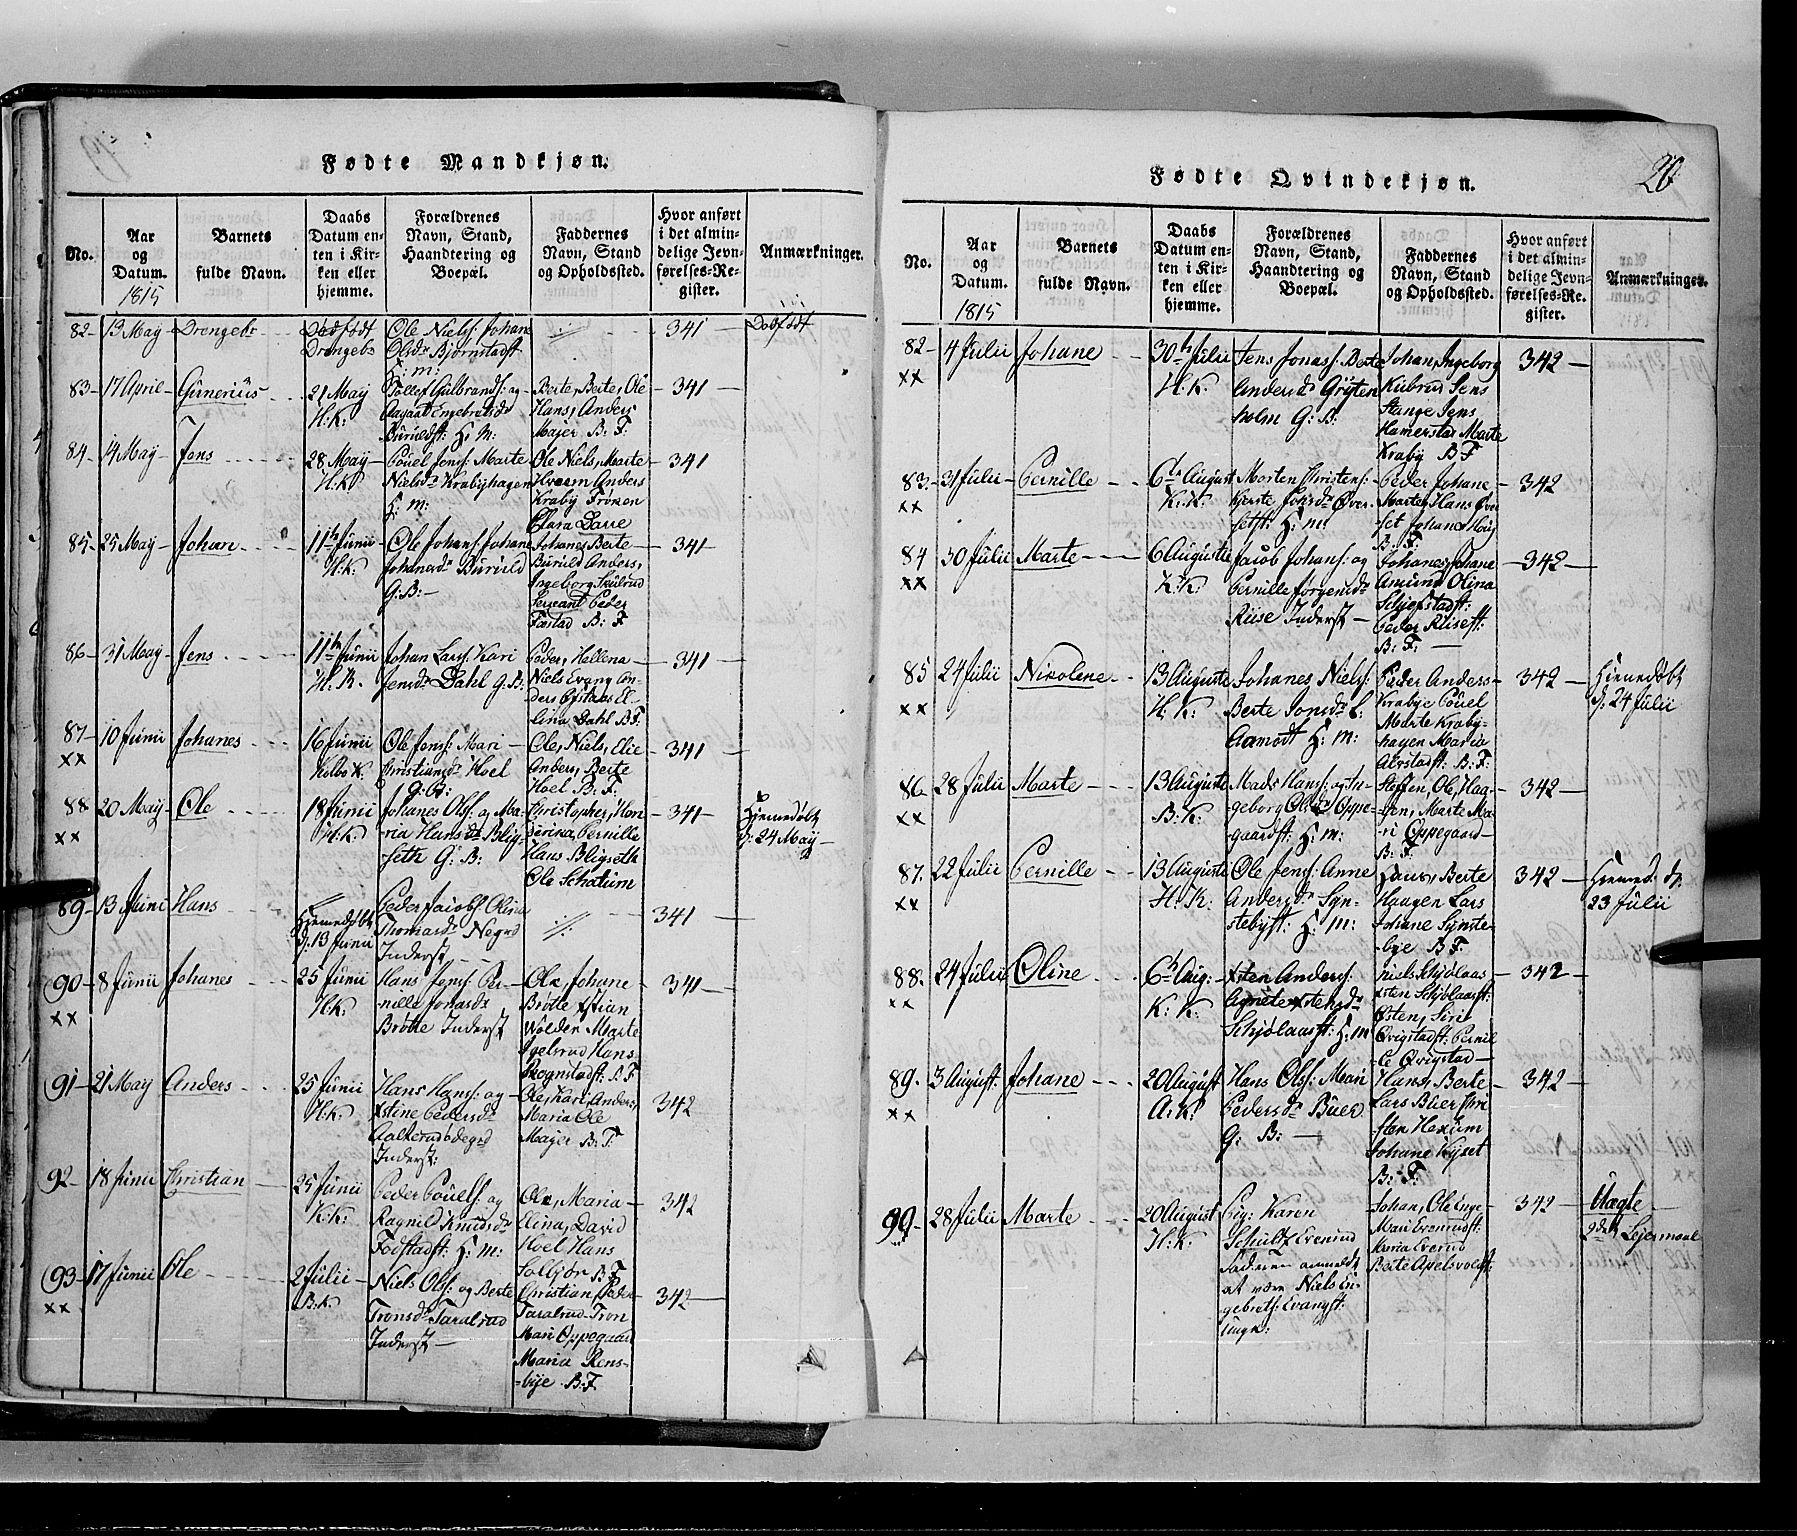 Fødte Mandkjøn.
No.
Aar
og
Datum.
1815
Barnets
fulde Navn.
Daabs
Datum en-
ten i Kir-
ken eller
hjemme.
Forældrenes
Navn, Stand,
Haandtering og
Boepæl.
Faddernes
Navn, Stand
og Opholdssted.
Hvor anført
i det almin-
delige Jevn-
førelses-Re-
gister.
Anmærkninger.
82-
13 May
Drengeb:
Dødfødt
Drengeb:
Ole Niels: Johan
Olsdr Bjørnstadst
H: m:
341
Dødfødt
83-
17 April-
Gunerius
21 May
H: K:
Tollef Gulbrands: og
Aagaat Engebretsdr
Buruldst: H: M:
Berte, Berte, Ole
Hans, Anders
Majer B: F:
341
84-
14 May-
Jens
28 May
H: K:
Povel Jens: Marte
Nielsdr Krabyhagen
H: m:
Ole Niels, Marte
Hveem Anders
Kraby Frøken
Clara Daue
341
85-
25 May-
Johan
11te Junii
H: K:
Ole Johans: Johane
Johanesdr Buruld
G: B:-
Johanes Berte
Buruld Anders,
Ingeborg Skulrud
Sergeant Peder
Fostad B: F
341
86-
31 May-
Jens
11te Junii
H. K.
Johan Lars: Kari
Jensdr Dahl G: B:
Peder, Hellena
Niels Evang
E-
lina Dahl B F
341
87-
xx
10 Junii
Johanes
16 Junii
Kolbo K.
Ole Jens: Mari
Christiansdr Hoel
G: B:
Ole, Niels, Elie
Anders, Berte
Hoel B: F:
341
88
xx
20 May-
Ole
18 Junii
H: K:
Johanes Ols: og Ma-
ria Hansdr Blig-
seth G: B:
Christopher, Hen-
derika, Pernille
Hans Bligseth
Ole Schatum
341
Hiemedøbt
d: 24 May-
89-
13 Juni
Hans
Hiemedøbt
d: 13 Junii
Peder Jacobs: Olina
Thomasdr Negrd
Inderst
341
90-
xx
8 Junii
Johanes
25 Junii
H. K:
Hans Jens: Per-
nille Jonasdr
Brøtte Inderst
Ole, Johane
Brøtte Xstian
Wolden Marte
Igelsrud Hans
Skognstadst: B F
341
91-
21 May
Anders
25 Junii
H. K:
Hans Hans: og
Xstine Pedersdr
Aalterudødegrd
Inderst:
Ole, Kari Anders,
Maria Ole
Majer B: F:
342
92-
18 Junii
Christian
25 Junii
K: K:
Peder Povels: og
Ragnild Knudsdr
Fodstadst: H: m:
Ole, Maria
Elina, David
Hoel Hans
Solbjør B F
342
93-
xx
17 Junii
Ole
2 Julii
B: K:
Niels Ols: og Berte
Tronsdr Taralrud
Inderst-
Christian Peder
Taralrud Tron
Mari Oppegaard
Maria Rens-
bye B: F
342
Fødte Qvindekjøn.
20
No.
Aar
og
Datum.
1815
Barnets
fulde Navn.
Daabs
Datum en-
ten i Kir-
ken eller
hjemme.
Forældrenes
Navn, Stand,
Haandtering og
Boepæl.
Faddernes
Navn, Stand
og Opholdssted.
Hvor anført
i det almin-
delige Jevn-
førelses-Re-
gister.
Anmærkninger.
82-
xx
4 Julii
Johane
30te Julii
H. K:
Jens Jonas: Berte
Andersdr Grøten
holm G: B:
Johan, Ingeborg
Kubrud Jens
Stange Jens
Hamerstad Marte
Kraby B F
342
83-
xx
31 Julii
Pernille
6te August
K: K:
Morten Christens:
Kierste Jonsdr Øver-
setst: H: m:
Peder Johane
Marte, Hans Øver
set Johane Houg
B: F:
342
84
xx
30 Julii
Marte
6 Auguste
K: K:
Jacob Johans: og
Pernille Jørgensdr
Riise Inderst
Johanes, Johane
Amund Olina
Schjefstadst:
Peder Riisest:
B: F:
342
85
xx
24 Julii
Nikolene
13 Auguste
H. K:
Johanes Niels:
Berte Jonsdr L:
Aamodt H: m:
Peder Anders
Krabye Povel
Marte Kraby-
hagen Maria
Alrstadst: B: F:
342
Hiemedøbt
d: 24 Julii
86-
xx
28 Julii
Marte
13 Auguste
B: K:
Mads Hans: og In-
geborg Olsdr Oppe-
gaardst: H: m:
Steffen, Ole, Haa-
gen, Marte Ma-
ri Oppegaard
B: F:
342
87.
xx
22 Julii
Pernille
13 Auguste
H. K:
Ole Jens: Anne
Andersdr Syn-
stebyst: H: m:
Laurs, Berte
Haagen Lars
Johane Synste-
bye B F.
342
Hiemed: d:
23 Julii
88.
xx
24 Julii
Oline
6te Aug:
K: K:
Xsten Anders:
Agnete Xstensdr
Schjølaasst: H: m
Niels Schjølaas
Xsten Schjølaasst:
Østen, Siri
Qvigstadst: Pernil
le Qvigstad
342
89.
xx
3 August:
Johane
20 August
A: K:
Hans Ols: Mari
Pedersdr Büer
G: B:
Hans, Berte
Lars Büer Chri
sten Hexum
Johane Kyset
B: F:
342
90-
28 Julii
Marte
20 August
H: K:
Pig: Karen
Schultz Evenrud
Faderen anmeldt
at være Niels En-
gebrets: Evangst:
Ungk:
Johan, Ole Enge
Mari Evenrudst:
Maria Evenrud
Berte Apelsvoldst:
342
Uægte
2det Leiermaal